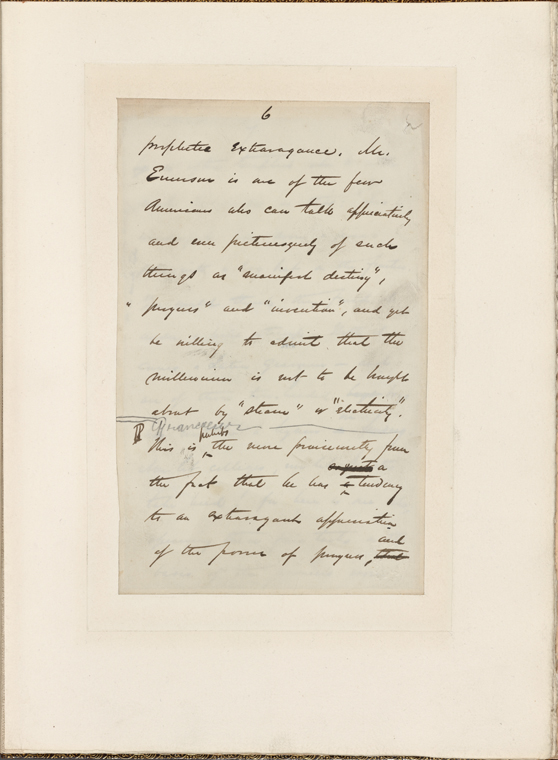 6
prophetic extravagance. Mr.
Emerson is one of the few
Americans who can talk appreciatively
and even picturesquely of such
things as "manifest destiny",
"progress" and "invention", and yet
be willing to admit that the
millennium is not to be brought
about by "steam" or "electricity".
This is perhaps the more praiseworthy from
the fact that he has a tendency
to an extravagant appreciation
of the power of progress, and